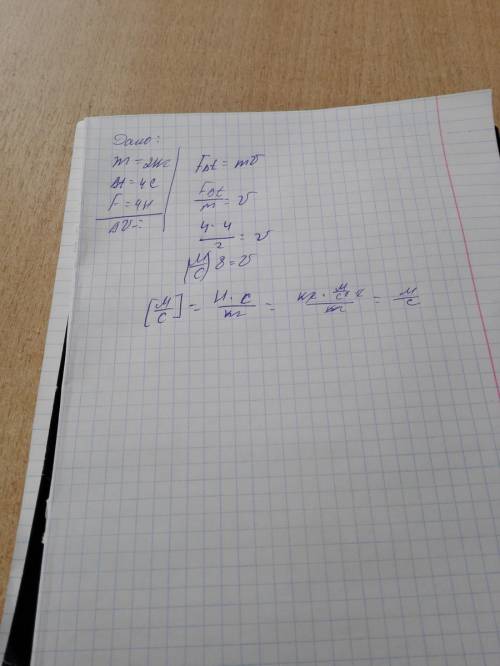 Дано:
m = 2кг
Δt = 4с
F = 4Н
ΔV-?
FΔt = mV
FΔt/m = V
4·4/2 = V
(м/с) 8 = V
[м/с] = Н·с/кг = кг·м/с²·с/кг = м/с